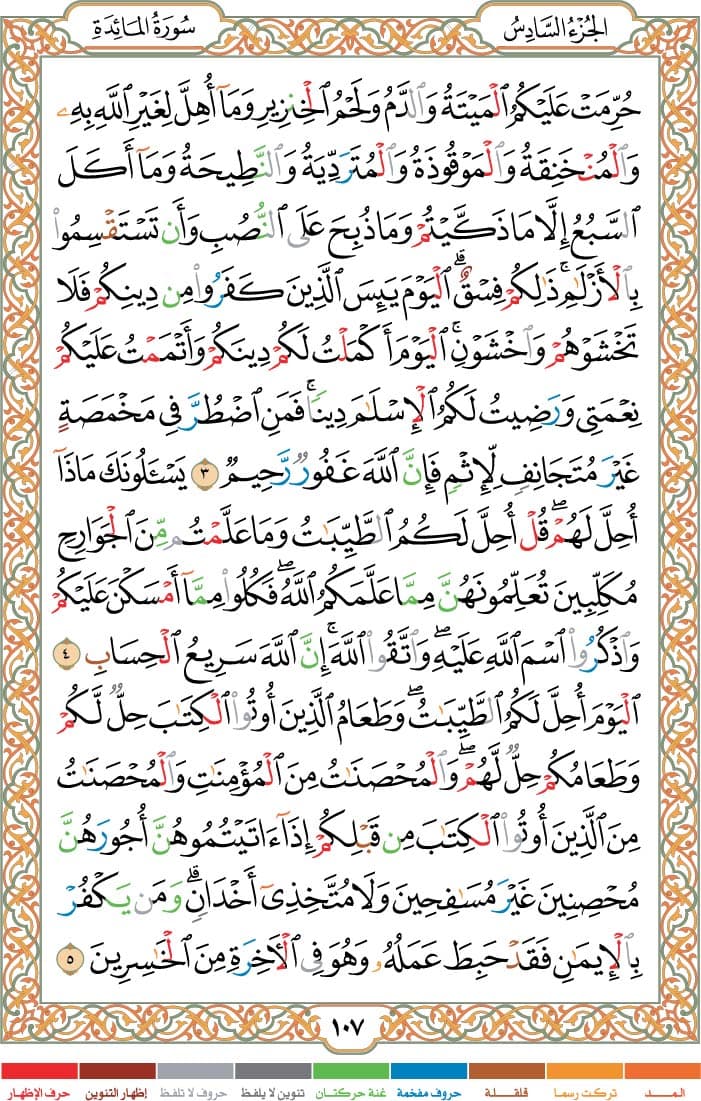 الجُزْءُ السَّادِسُ
سُورَةُ المَائِدَةِ
حُرِّمَتْ عَلَيْكُمُ ٱلْمَيْتَةُ وَٱلدَّمُ وَلَحْمُ ٱلْخِنزِيرِ وَمَآ أُهِلَّ لِغَيْرِ ٱللَّهِ بِهِۦ
وَٱلْمُنْخَنِقَةُ وَٱلْمَوْقُوذَةُ وَٱلْمُتَرَدِّيَةُ وَٱلنَّطِيحَةُ وَمَآ أَكَلَ
ٱلسَّبُعُ إِلَّا مَا ذَكَّيْتُمْ وَمَا ذُبِحَ عَلَى ٱلنُّصُبِ وَأَن تَسْتَقْسِمُوا۟
بِٱلْأَزْلَٰمِ ۚ ذَٰلِكُمْ فِسْقٌ ۗ ٱلْيَوْمَ يَئِسَ ٱلَّذِينَ كَفَرُوا۟ مِن دِينِكُمْ فَلَا
تَخْشَوْهُمْ وَٱخْشَوْنِ ۚ ٱلْيَوْمَ أَكْمَلْتُ لَكُمْ دِينَكُمْ وَأَتْمَمْتُ عَلَيْكُمْ
نِعْمَتِى وَرَضِيتُ لَكُمُ ٱلْإِسْلَٰمَ دِينًا ۚ فَمَنِ ٱضْطُرَّ فِى مَخْمَصَةٍ
غَيْرَ مُتَجَانِفٍ لِّإِثْمٍ ۙ فَإِنَّ ٱللَّهَ غَفُورٌ رَّحِيمٌ ٣ يَسْـَٔلُونَكَ مَاذَآ
أُحِلَّ لَهُمْ ۖ قُلْ أُحِلَّ لَكُمُ ٱلطَّيِّبَٰتُ ۙ وَمَا عَلَّمْتُم مِّنَ ٱلْجَوَارِحِ
مُكَلِّبِينَ تُعَلِّمُونَهُنَّ مِمَّا عَلَّمَكُمُ ٱللَّهُ ۖ فَكُلُوا۟ مِمَّآ أَمْسَكْنَ عَلَيْكُمْ
وَٱذْكُرُوا۟ ٱسْمَ ٱللَّهِ عَلَيْهِ ۖ وَٱتَّقُوا۟ ٱللَّهَ ۚ إِنَّ ٱللَّهَ سَرِيعُ ٱلْحِسَابِ ٤
ٱلْيَوْمَ أُحِلَّ لَكُمُ ٱلطَّيِّبَٰتُ ۖ وَطَعَامُ ٱلَّذِينَ أُوتُوا۟ ٱلْكِتَٰبَ حِلٌّ لَّكُمْ
وَطَعَامُكُمْ حِلٌّ لَّهُمْ ۖ وَٱلْمُحْصَنَٰتُ مِنَ ٱلْمُؤْمِنَٰتِ وَٱلْمُحْصَنَٰتُ
مِنَ ٱلَّذِينَ أُوتُوا۟ ٱلْكِتَٰبَ مِن قَبْلِكُمْ إِذَآ ءَاتَيْتُمُوهُنَّ أُجُورَهُنَّ
مُحْصِنِينَ غَيْرَ مُسَٰفِحِينَ وَلَا مُتَّخِذِىٓ أَخْدَانٍ ۗ وَمَن يَكْفُرْ
بِٱلْإِيمَٰنِ فَقَدْ حَبِطَ عَمَلُهُۥ وَهُوَ فِى ٱلْءَاخِرَةِ مِنَ ٱلْخَٰسِرِينَ ٥
١٠٧
المـــد
تركت رسما
قلقـــلة
حروف مفخمة
غنة حركتان
تنوين لا يلفظ
حروف لا تلفظ
إظهار التنوين
حرف الإظهار